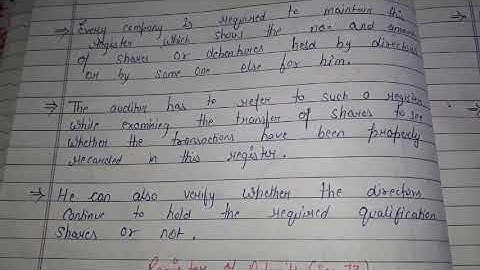 → Every company is required to maintain this
register which shows the no. and amount
of shares or debentures held by directors
or by some one else for him.
→ The auditor has to refer to such a register
while examining the transfer of shares to see
whether the transactions have been properly
recorded in this register.
→ He can also verify whether the directors
continue to hold the required qualification
shares or not.
Register of